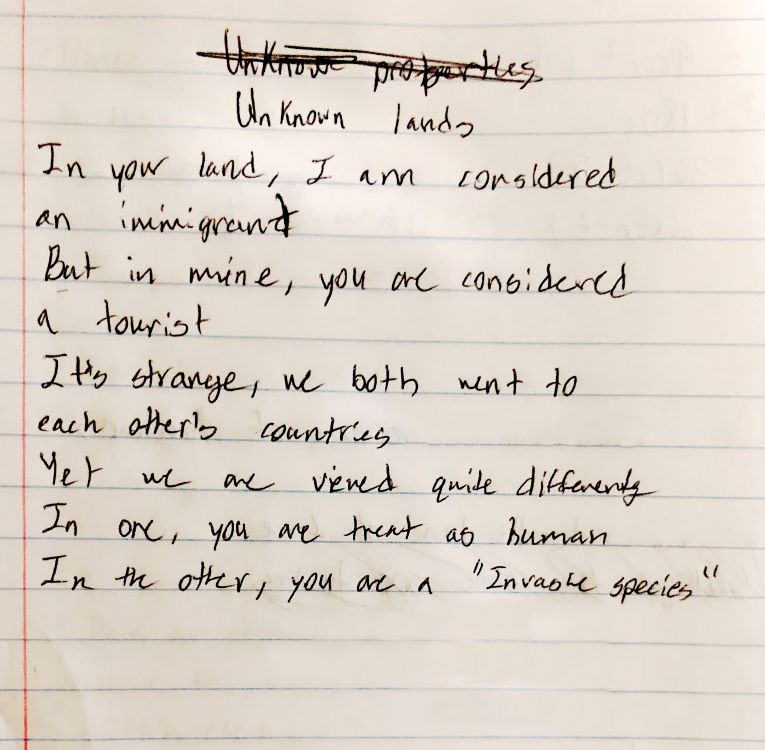 Unknown properties
Unknown lands
In your land, I am considered
an immigrant
But in mine, you are considered
a tourist
It's strange, we both went to
each other's countries
Yet we are viewed quite differently
In one, you are treat as human
In the other, you are a "Invasive species"